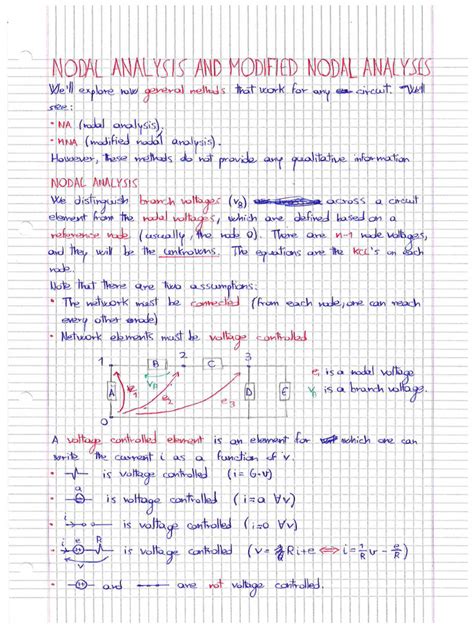 NODAL ANALYSIS AND MODIFIED NODAL ANALYSES
We'll explore now general methods that work for any circuit. We'll
see:
• NA (nodal analysis).
• MNA (modified nodal analysis).
However, these methods do not provide any qualitative information
NODAL ANALYSIS
We distinguish branch voltages (v_B) across a circuit
element from the nodal voltages, which are defined based on a
reference node (usually, the node 0). There are n-1 node voltages,
and they will be the unknowns. The equations are the KCL's on each
node.
Note that there are two assumptions:
• The network must be connected (from each node, one can reach
every other node)
• Network elements must be voltage controlled
1 B 2 C 3
v_B
A e1 e2 e3 D E
0
e_i is a nodal voltage
v_B is a branch voltage.
A voltage controlled element is an element for which one can
write the current i as a function of v.
• is voltage controlled (i = G·v)
• a is voltage controlled (i = a ∀v)
• i is voltage controlled (i=0 ∀v)
• i e R v is voltage controlled (v = Ri+e ⟺ i = 1/R v - e/R)
• and are not voltage controlled.